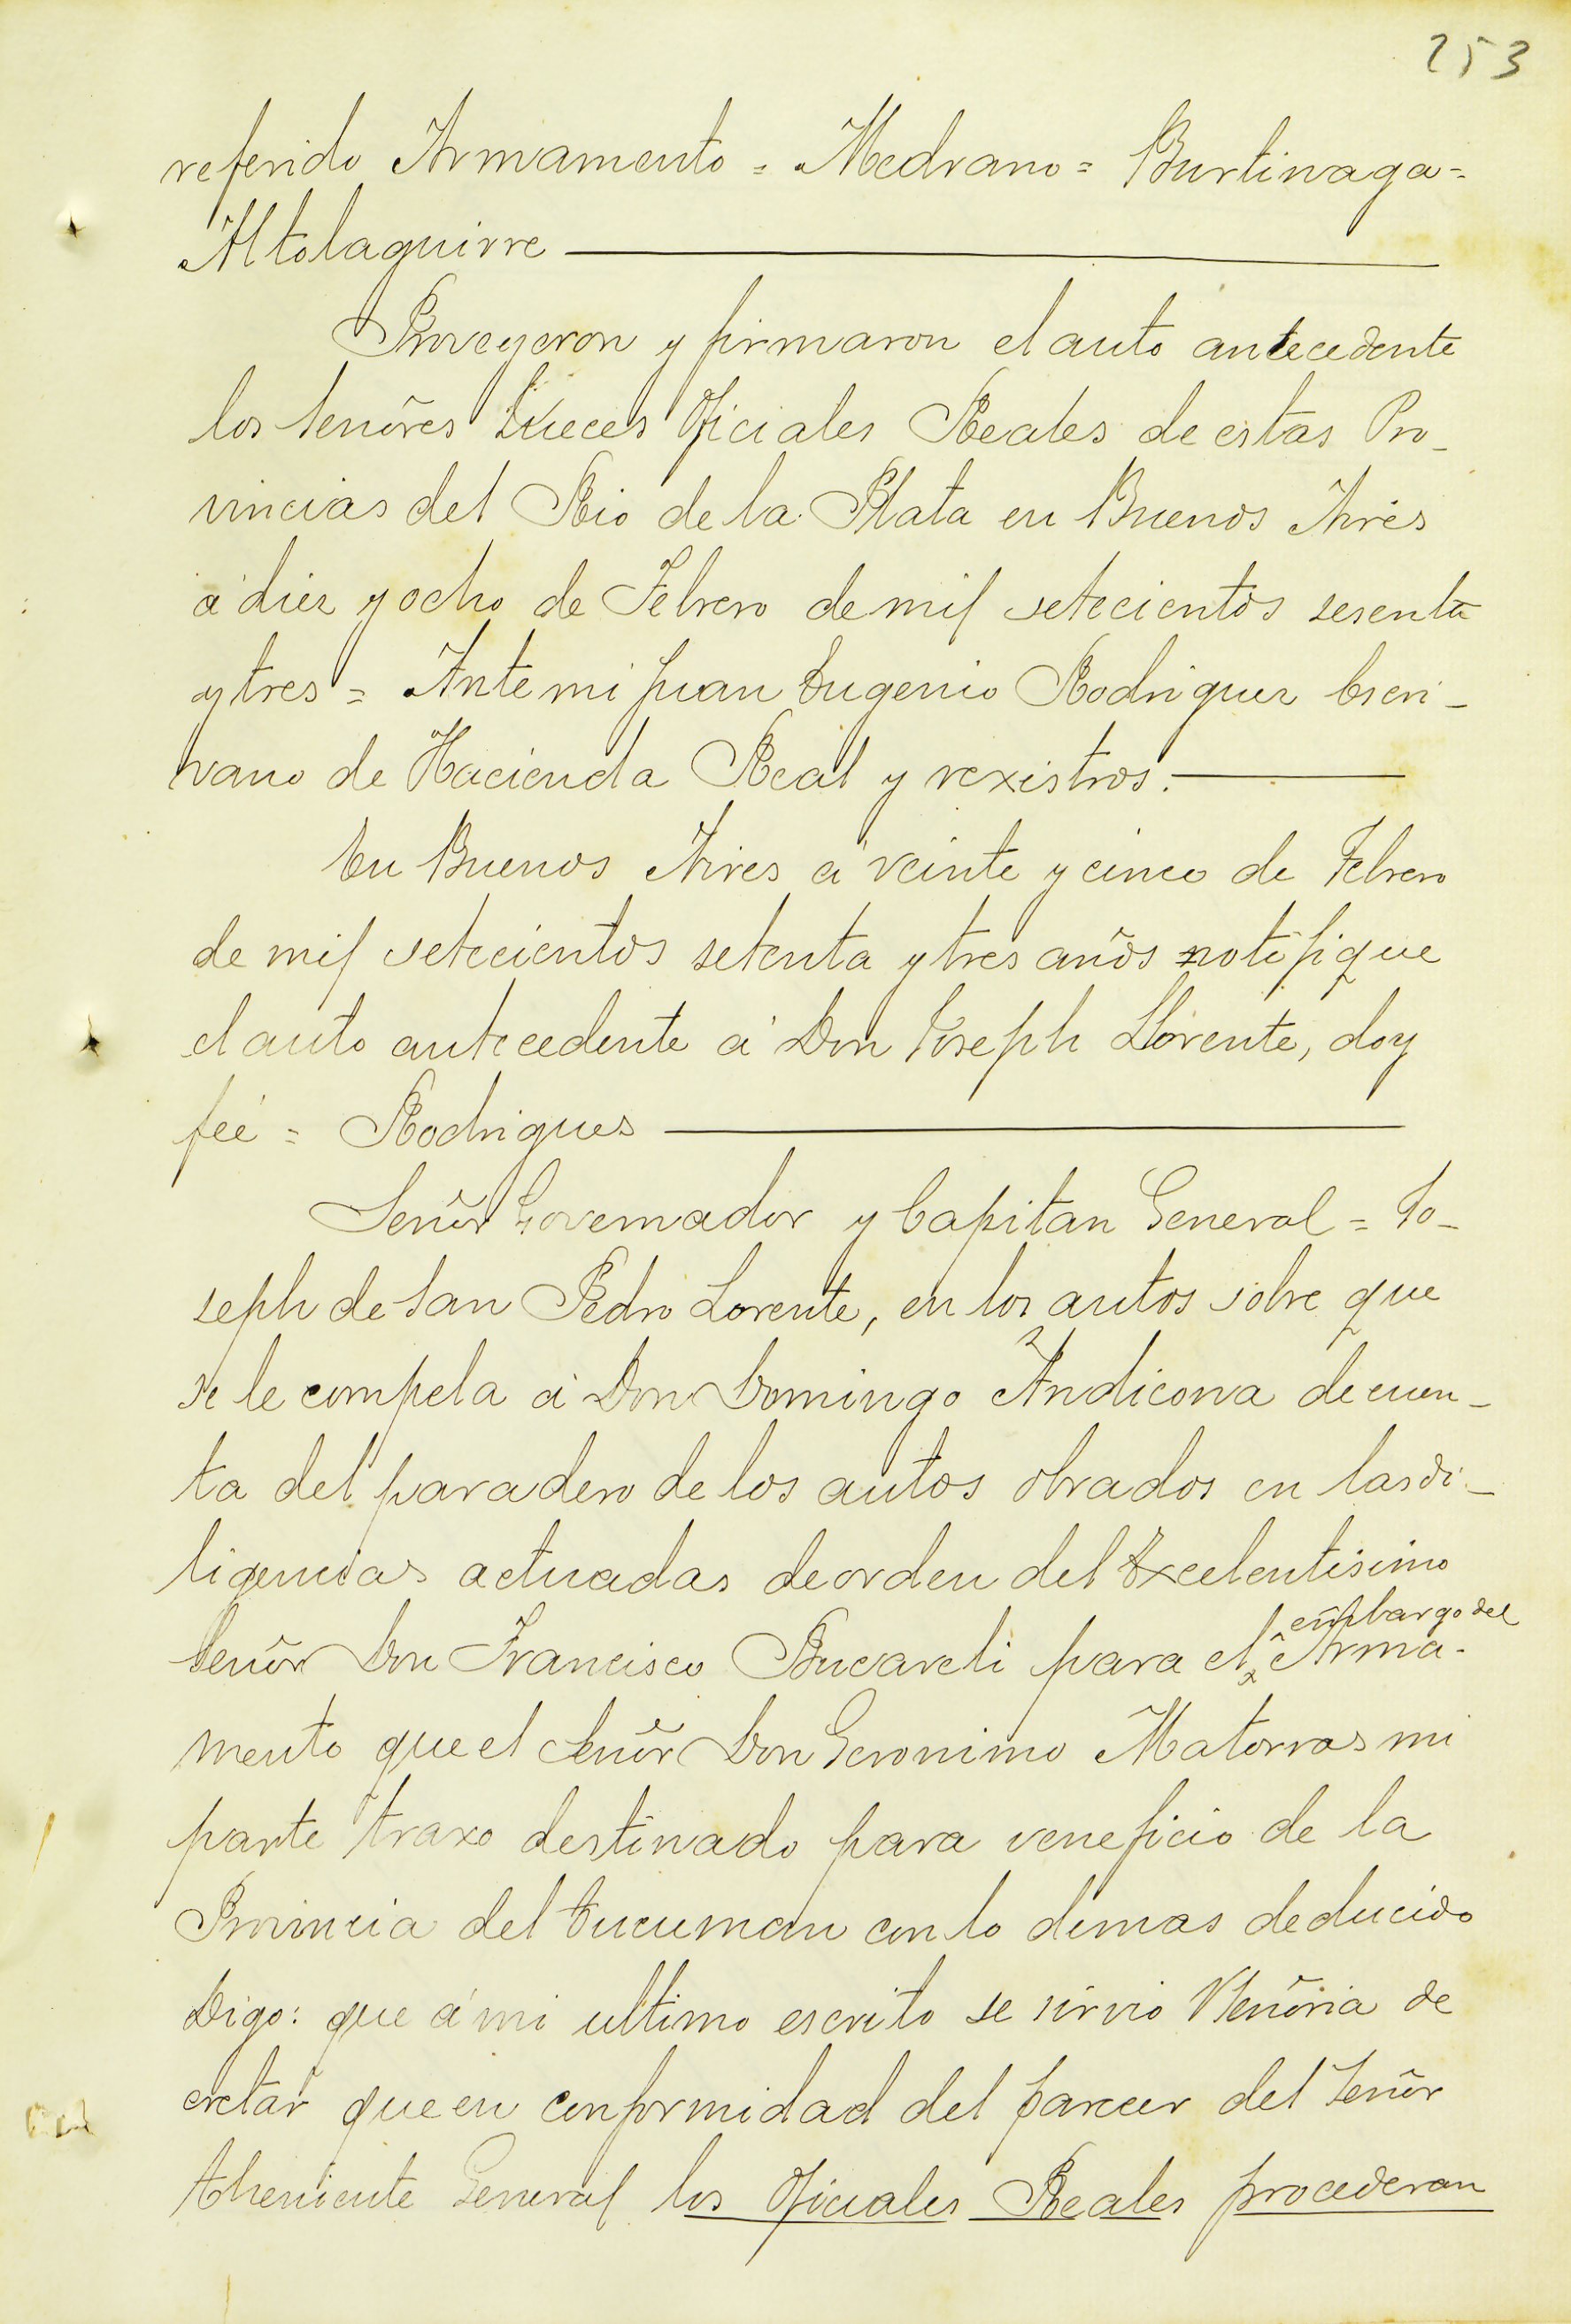 253
referido Armamento = Medrano = Burtinaga =
Altolaguirre
Proveyeron y firmaron el auto antecedente
los Señores Jueces Oficiales Reales de estas Pro-
vincias del Rio de la Plata en Buenos Aires
á diez y ocho de Febrero de mil setecientos sesenta
y tres = Ante mi Juan Eugenio Rodriguez Escri-
vano de Hacienda Real y rexistros.
En Buenos Aires á veinte y cinco de Febrero
de mil setecientos setenta y tres años notifique
el auto antecedente á Don Joseph Llorente, doy
feé = Rodrigues
Señor Governador y Capitan General = Jo-
seph de San Pedro Lorente, en los autos sobre que
se le compela á Don Domingo Andicona de cuen-
ta del paradero de los autos obrados en las di-
ligencias actuadas de orden del Excelentisimo
Señor Don Francisco Bucareli para el embargo del Arma-
mento que el Señor Don Geronimo Matorras mi
parte traxo destinado para veneficio de la
Provincia del Tucuman con lo demas deducido
Digo: que á mi ultimo escrito se sirvio VSeñoria de
cretar que en conformidad del parecer del Señor
Theniente General los Oficiales Reales procederan